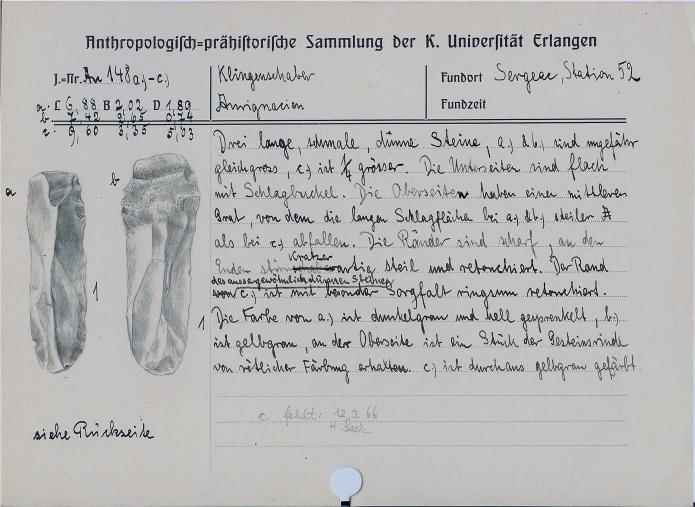 Anthropologisch=prähistorische Sammlung der K. Universität Erlangen
J.=Nr. An 148 a,-c,)
Klingenschaber
Fundort Sergeac, Station 52
a. L 6,88 B 2,02 D 1,89
Aurignacien
Fundzeit
b. 7,42 3,65 0,74
c. 9,60 3,35 5,53
Drei lange, schmale, dünne Steine, a,) & b,) sind ungefähr
gleichgross, c,) ist ¼ grösser. Die Unterseiten sind flach
mit Schlagbuckel. Die Oberseiten haben einen mittleren
Grat, von dem die langen Schlagflächen bei a,) & b,) steiler
als bei c,) abfallen. Die Ränder sind scharf, an den
Kratzer
Enden artig steil und retouchiert. Der Rand
des aussergewöhnlich dünnen Steines
von c,) ist mit besonder Sorgfalt ringsum retouchiert.
Die Farbe von a,) ist dunkelgrau und hell gesprenkelt, b,)
ist gelbgrau, an der Oberseite ist ein Stück der Gesteinsrinde
von rötlicher Färbung erhalten. c,) ist durchaus gelbgrau gefärbt.
a
b
1
1
c. fehlt: 12.3.66
siehe Rückseite